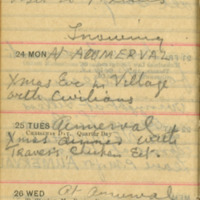 Snowing
24 MON At AUMERVAL
Xmas Eve in Village
with Civilians
25 TUES Aumerval
Christmas Day. Quarter Day
Xmas dinner with
Travers Chicken Etc.
26 WED At Aumerval